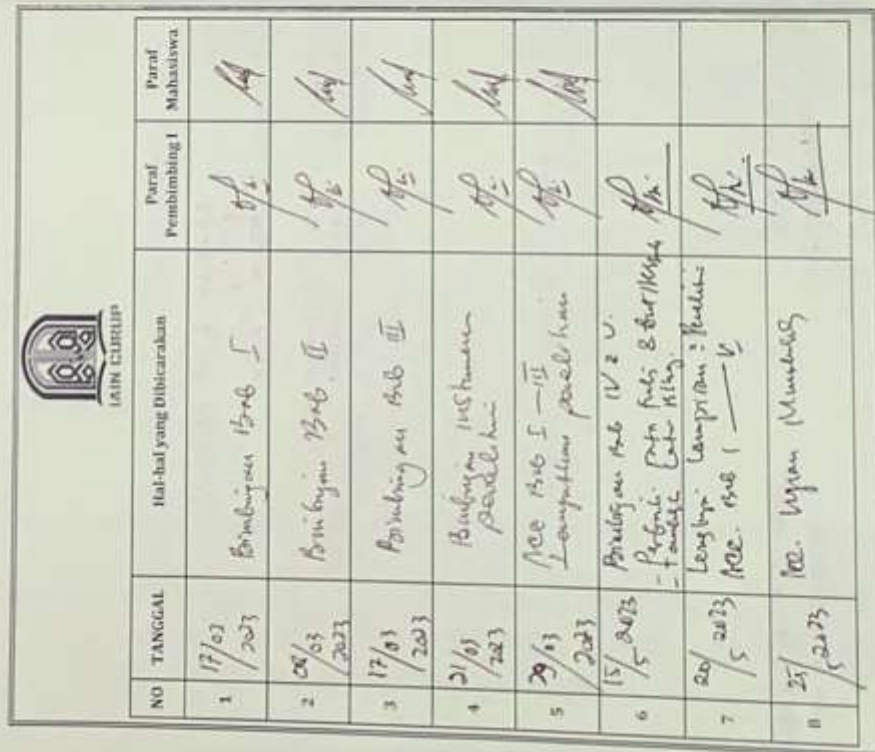 IAIN CURUP
NO TANGGAL Hal-hal yang Dibicarakan Paraf Pembimbing I Paraf Mahasiswa
1 17/02 2023 Bimbingan Bab I
2 08/03 2023 Bimbingan Bab II
3 17/03 2023 Bimbingan Bab III
4 21/03 2023 Bimbingan Instrumen
penelitian
5 29/03 2023 Acc Bab I — III
Lanjutkan penelitian
6 15/5 2023 Bimbingan Bab IV & V.
- Perbaiki
-
7 20/5 2023 Lengkapi Lampiran2 Penelitian
Acc. Bab I — V
8 25/5 2023 Acc. Ujian Munaqasah